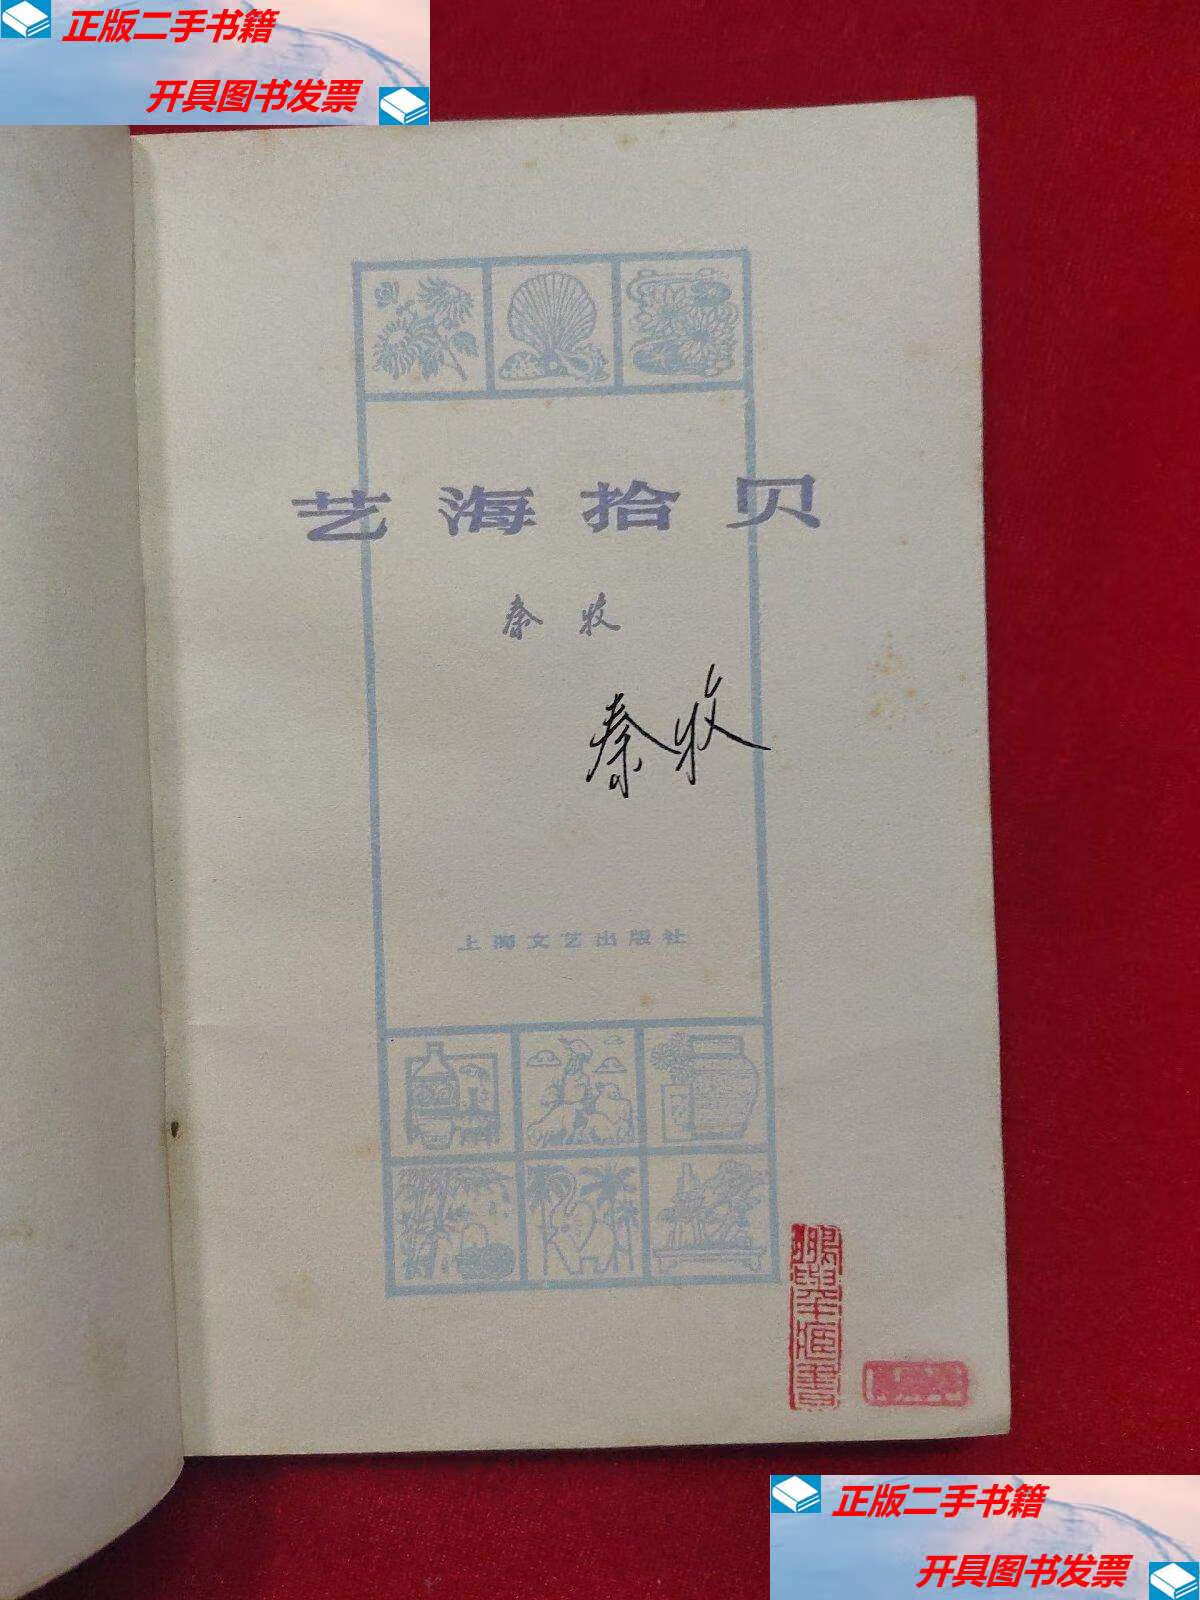 正版二手书籍
开具图书发票
艺海拾贝
秦牧
秦牧
上海文艺出版社
正版二手书籍
开具图书发票